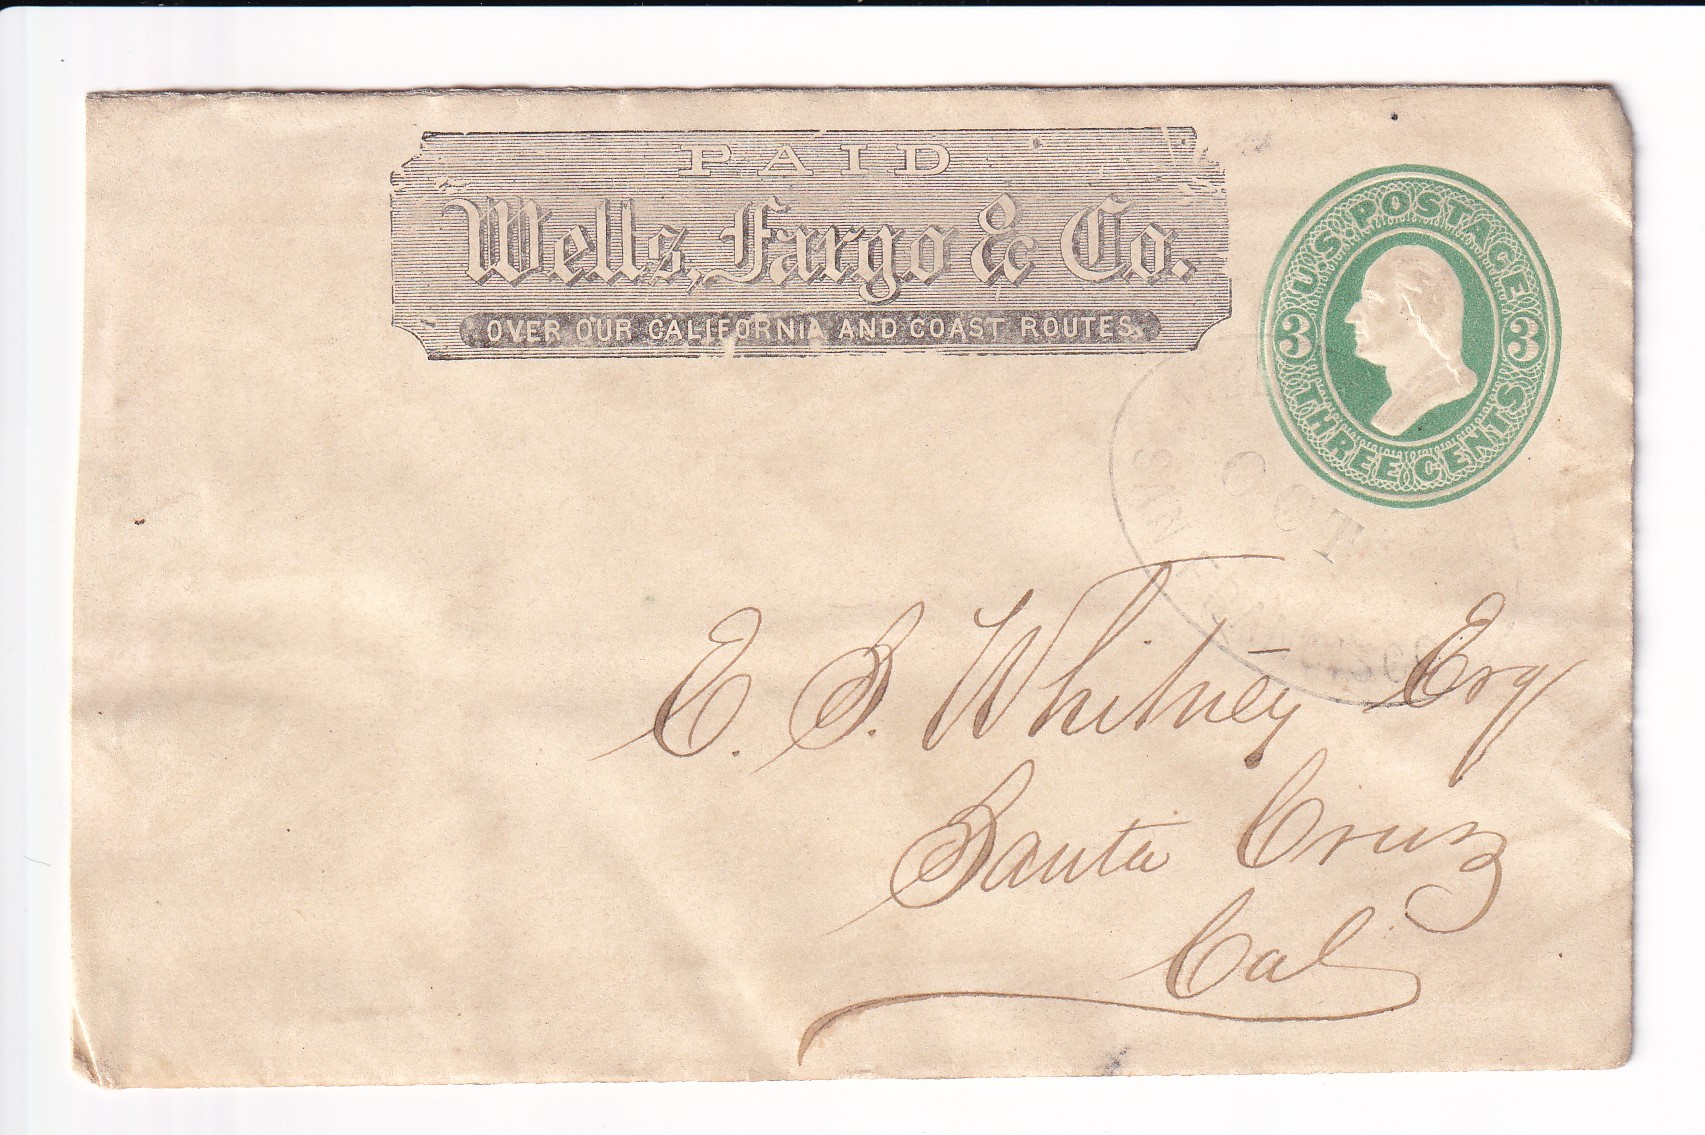 PAID
Wells, Fargo & Co.
OVER OUR CALIFORNIA AND COAST ROUTES.
U.S. POSTAGE
3 3
THREE CENTS
OCT
SAN FRANCISCO
E. S. Whitney Esq
Santa Cruz
Cal